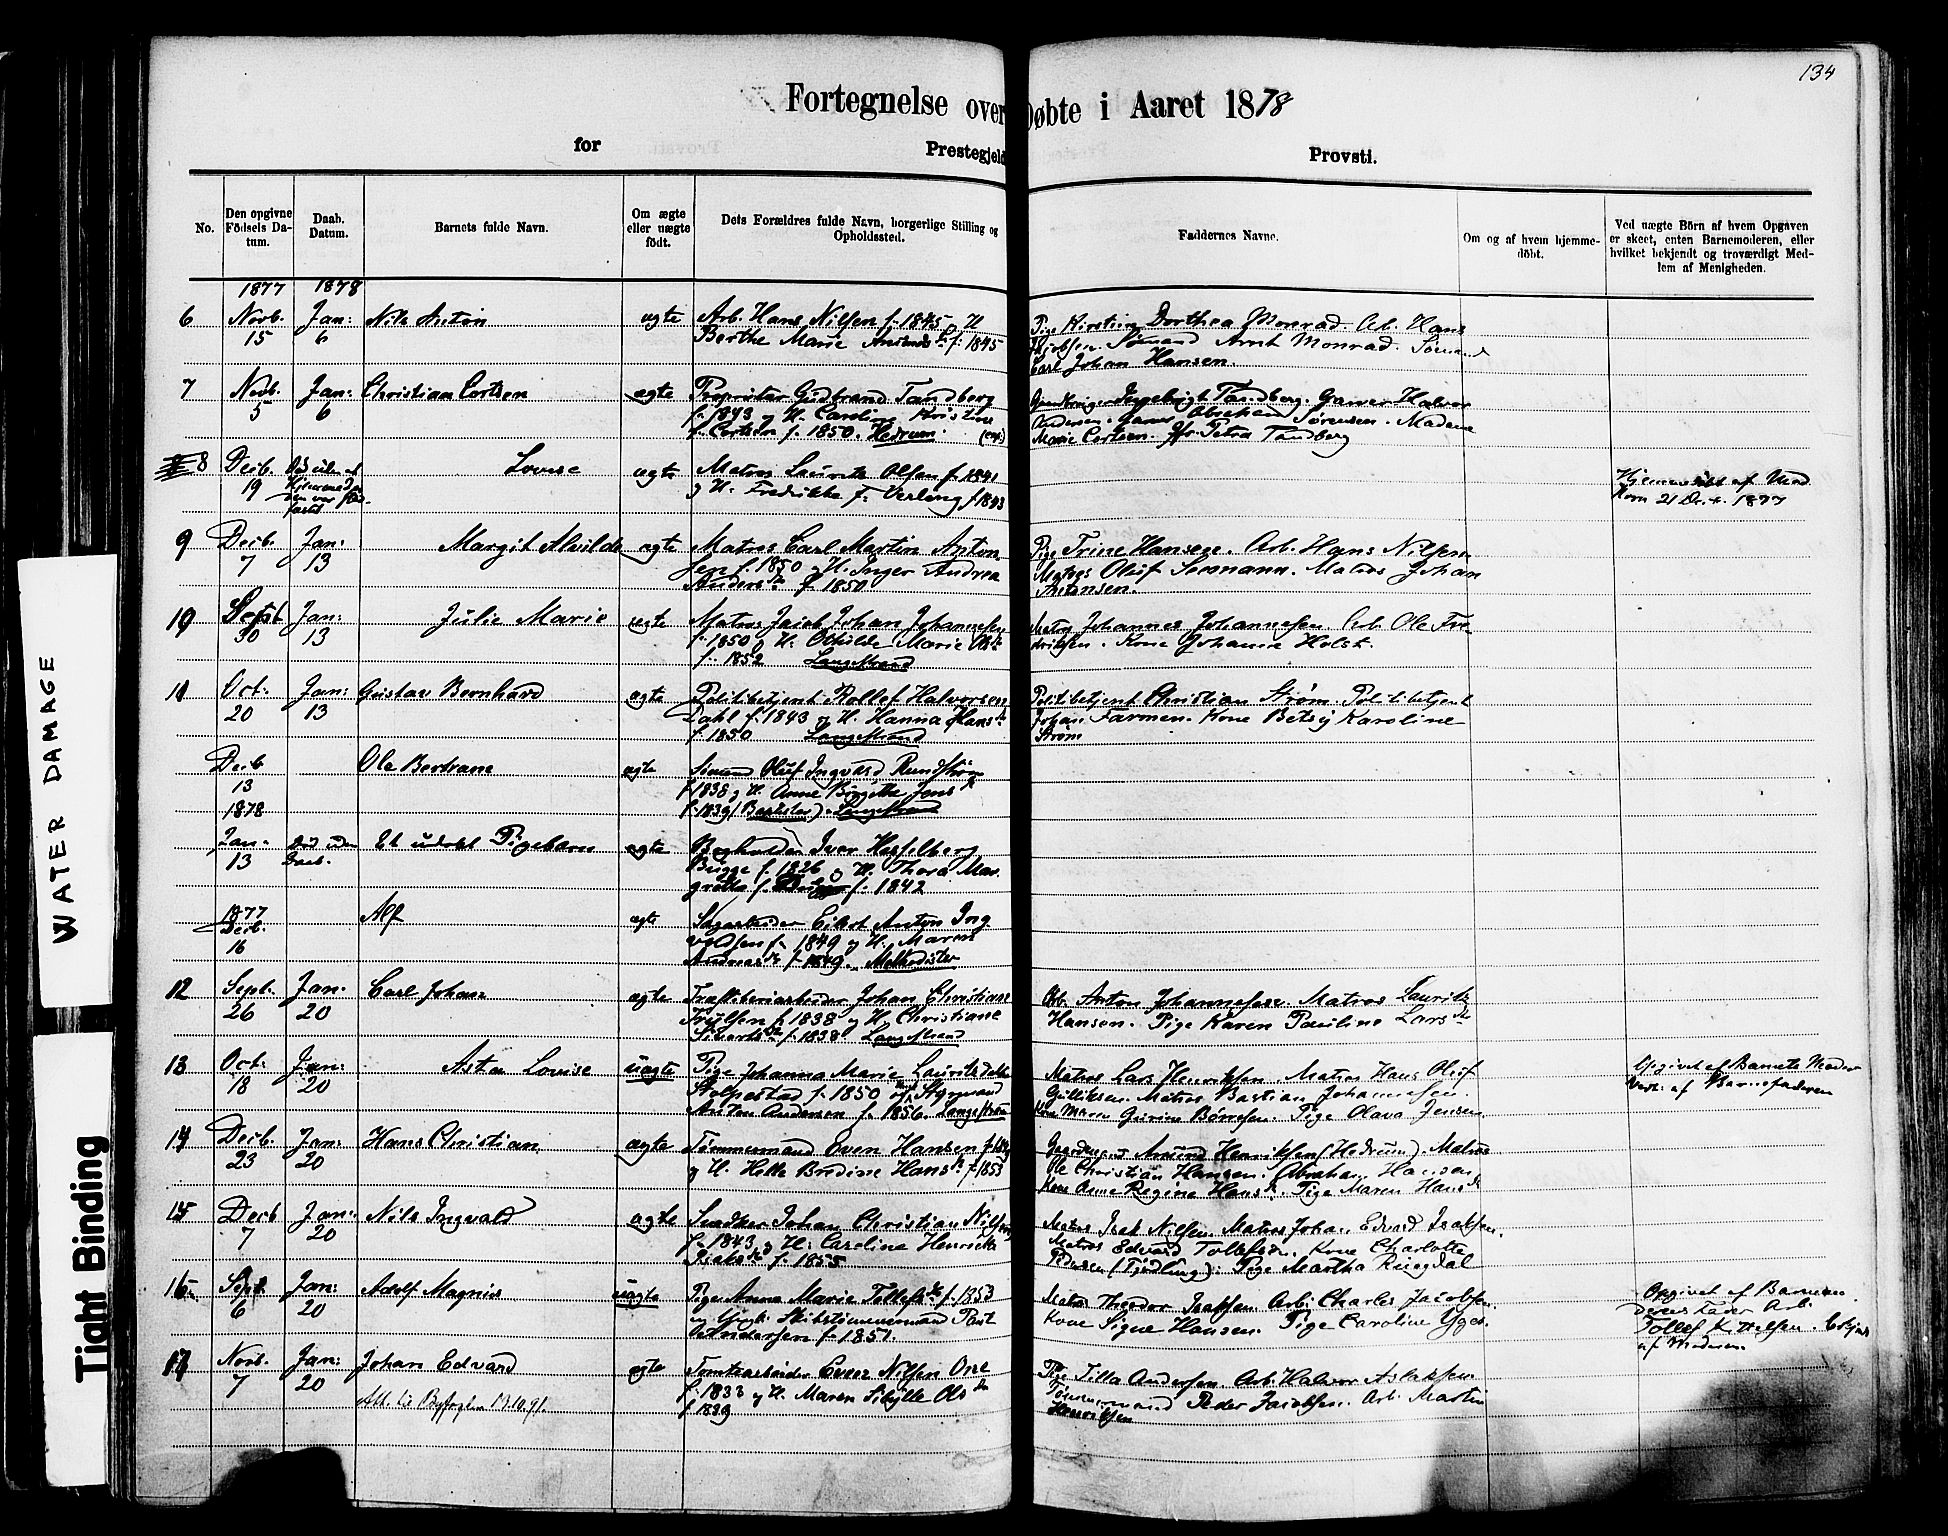 134
Fortegnelse over Døbte i Aaret 1878
for Prestegjeld Provsti.
No.
Den opgivne Födsels Datum.
Daab. Datum.
Barnets fulde Navn.
Om ægte eller uægte født.
Dets Forældres fulde Navn, borgerlige Stilling og Opholdssted.
Faddernes Navne.
Om og af hvem hjemmedöbt.
Ved uægte Börn af hvem Opgaven er skeet, enten Barnemoderen, eller hvilket bekjendt og troværdigt Medlem af Menigheden.
1877 1878
6 Novb. 15 Jan: 6 Nils Anton ægte
Arb. Hans Nilsen f. 1845 og H.
Berthe Marie f. 1845
Pige Kirstin Dorthea Monrad. Arb. Hans
Jacobsen. Sömand Arnt Monrad. Sömand
Carl Johan Hansen.
7 Novb. 5 Jan: 6 Christian Cortsen ægte
Proprietær Gudbrand Tandberg
f. 1843 og H. Caroline Kristine
f. Cortsen f. 1850. Hedrum.
Gaardbruger Ingebrigt Tandberg. Garver Halvor
Andersen. Garver Abraham Sørensen. Madame
Marie Cortsen. Jfr. Petra Tandberg
8 Decb. 19 Louise ægte
Matros Lauritz Olsen f. 1841
og H. Fredrikke f. Verling f. 1843
Hjemmedöbt af Mad.
Horn 21 Dec. 1877
9 Decb. 7 Jan: 13 Margit Alvilde ægte
Matros Carl Martin Anton-
sen f. 1850 og H. Inger Andrea
Andersdr f. 1850
Pige Trine Hansen. Arb. Hans Nilsen
Matros Oluf Semmann. Matros Johan
Antonsen.
10 Sept 30 Jan: 13 Julie Marie ægte
Matros Jacob Johan Johannesen
f. 1850 og H. Othilde Marie
f. 1852 Langestrand
Matros Johannes Johannesen Arb. Ole Fre-
driksen. Kone Johanne Holst.
11 Oct: 20 Jan: 13 Gustav Bernhard ægte
Politibetjent Rollef Halvorsen
Dahl f. 1843 og H. Hanna Hansdr
f. 1850 Langestrand
Politibetjent Christian Strøm. Politibetjent
Johan Farmen. Kone Betsy Karoline
Strøm
Decb 13 Ole Bertrane ægte
Sömand Oluf Ingvard Rundstrøm
f. 1838 og H. Anne Birgitte Jensdr
f. 1839 (Baptister). Langestrand
1878
Jan. 13 Död uden Daab. Et udöbt Pigebarn ægte
Bogholder Iver Hesselberg
Bugge f. 1826 og H. Thora Mar-
grethe f. Bugge f. 1842
1877
Decb. 16 Alf ægte
Sagarbeider Eilert Anton Ing-
valdsen f. 1849 og H. Maren
Andreasdr f. 1849. Methodister
12 Sept. 26 Jan. 20 Carl Johan ægte
Træsliberiarbeider Johan Christian
f. 1838 og H. Christiane
Sivertsdr f. 1838 Langestrand
Arb. Anton Johannesen. Matros Lauritz
Hansen. Pige Karen Pauline Larsdr
13 Oct: 18 Jan: 20 Asta Lovise uægte
Pige Johanna Marie Lauritzdatter
Stolpestad f. 1850 og
Anton Andersen f. 1856. Langestrand
Matros Lars Henriksen. Matros Hans Oluf
Gulliksen. Matros Bastian Johannesen.
Kone Maren Gurine Børresen. Pige Olava Jensen
Opgivet af Barnets Moder
af Barnefaderen
14 Decb. 23 Jan: 20 Hans Christian ægte
Tømmermand Even Hansen
og H. Helle Bredine Hansdr f. 1853
Gaardbruger Amund Henriksen (Hedrum). Matros
Ole Christian Hansen. Abraham Hansen
Kone Anne Regine Hansdr. Pige Maren Hansdr
15 Decb 7 Jan: 20 Nils Ingvald ægte
Snedker Johan Christian Nilsen
f. 1843 og H: Caroline Henriette
Isaksdr f. 1855
Matros Isak Nilsen. Matros Johan Edvard Isaksen.
Matros Edvard Tollefsen. Kone Charlotte
Pedersen (Tjødling). Pige Martha Ringdal
16 Sept 6 Jan: 20 Adolf Magnus uægte
Pige Anna Marie Tollefsdr f. 1853
og Ungk. Skibstømmermand
Andersen f. 1851.
Matros Theodor Isaksen Arb: Charles Jacobsen
Kone Signe Hansen. Pige Caroline
Opgivet af Barnemo-
derens Fader Arb.
Tollef Kittelsen.
af Moderen.
17 Novb. 7 Jan: 20 Johan Edvard ægte
Tomtearbeider Nilsen
f. 1833 og H. Maren Sibylle Olsdr
f. 1839
Att. til Byfogden 19.10.91.
Pige Tilla Andersen Arb. Halvor Aslaksen
Tömmermand Peder Jacobsen. Arb. Martin
Henriksen
WATER DAMAGE
Tight Binding